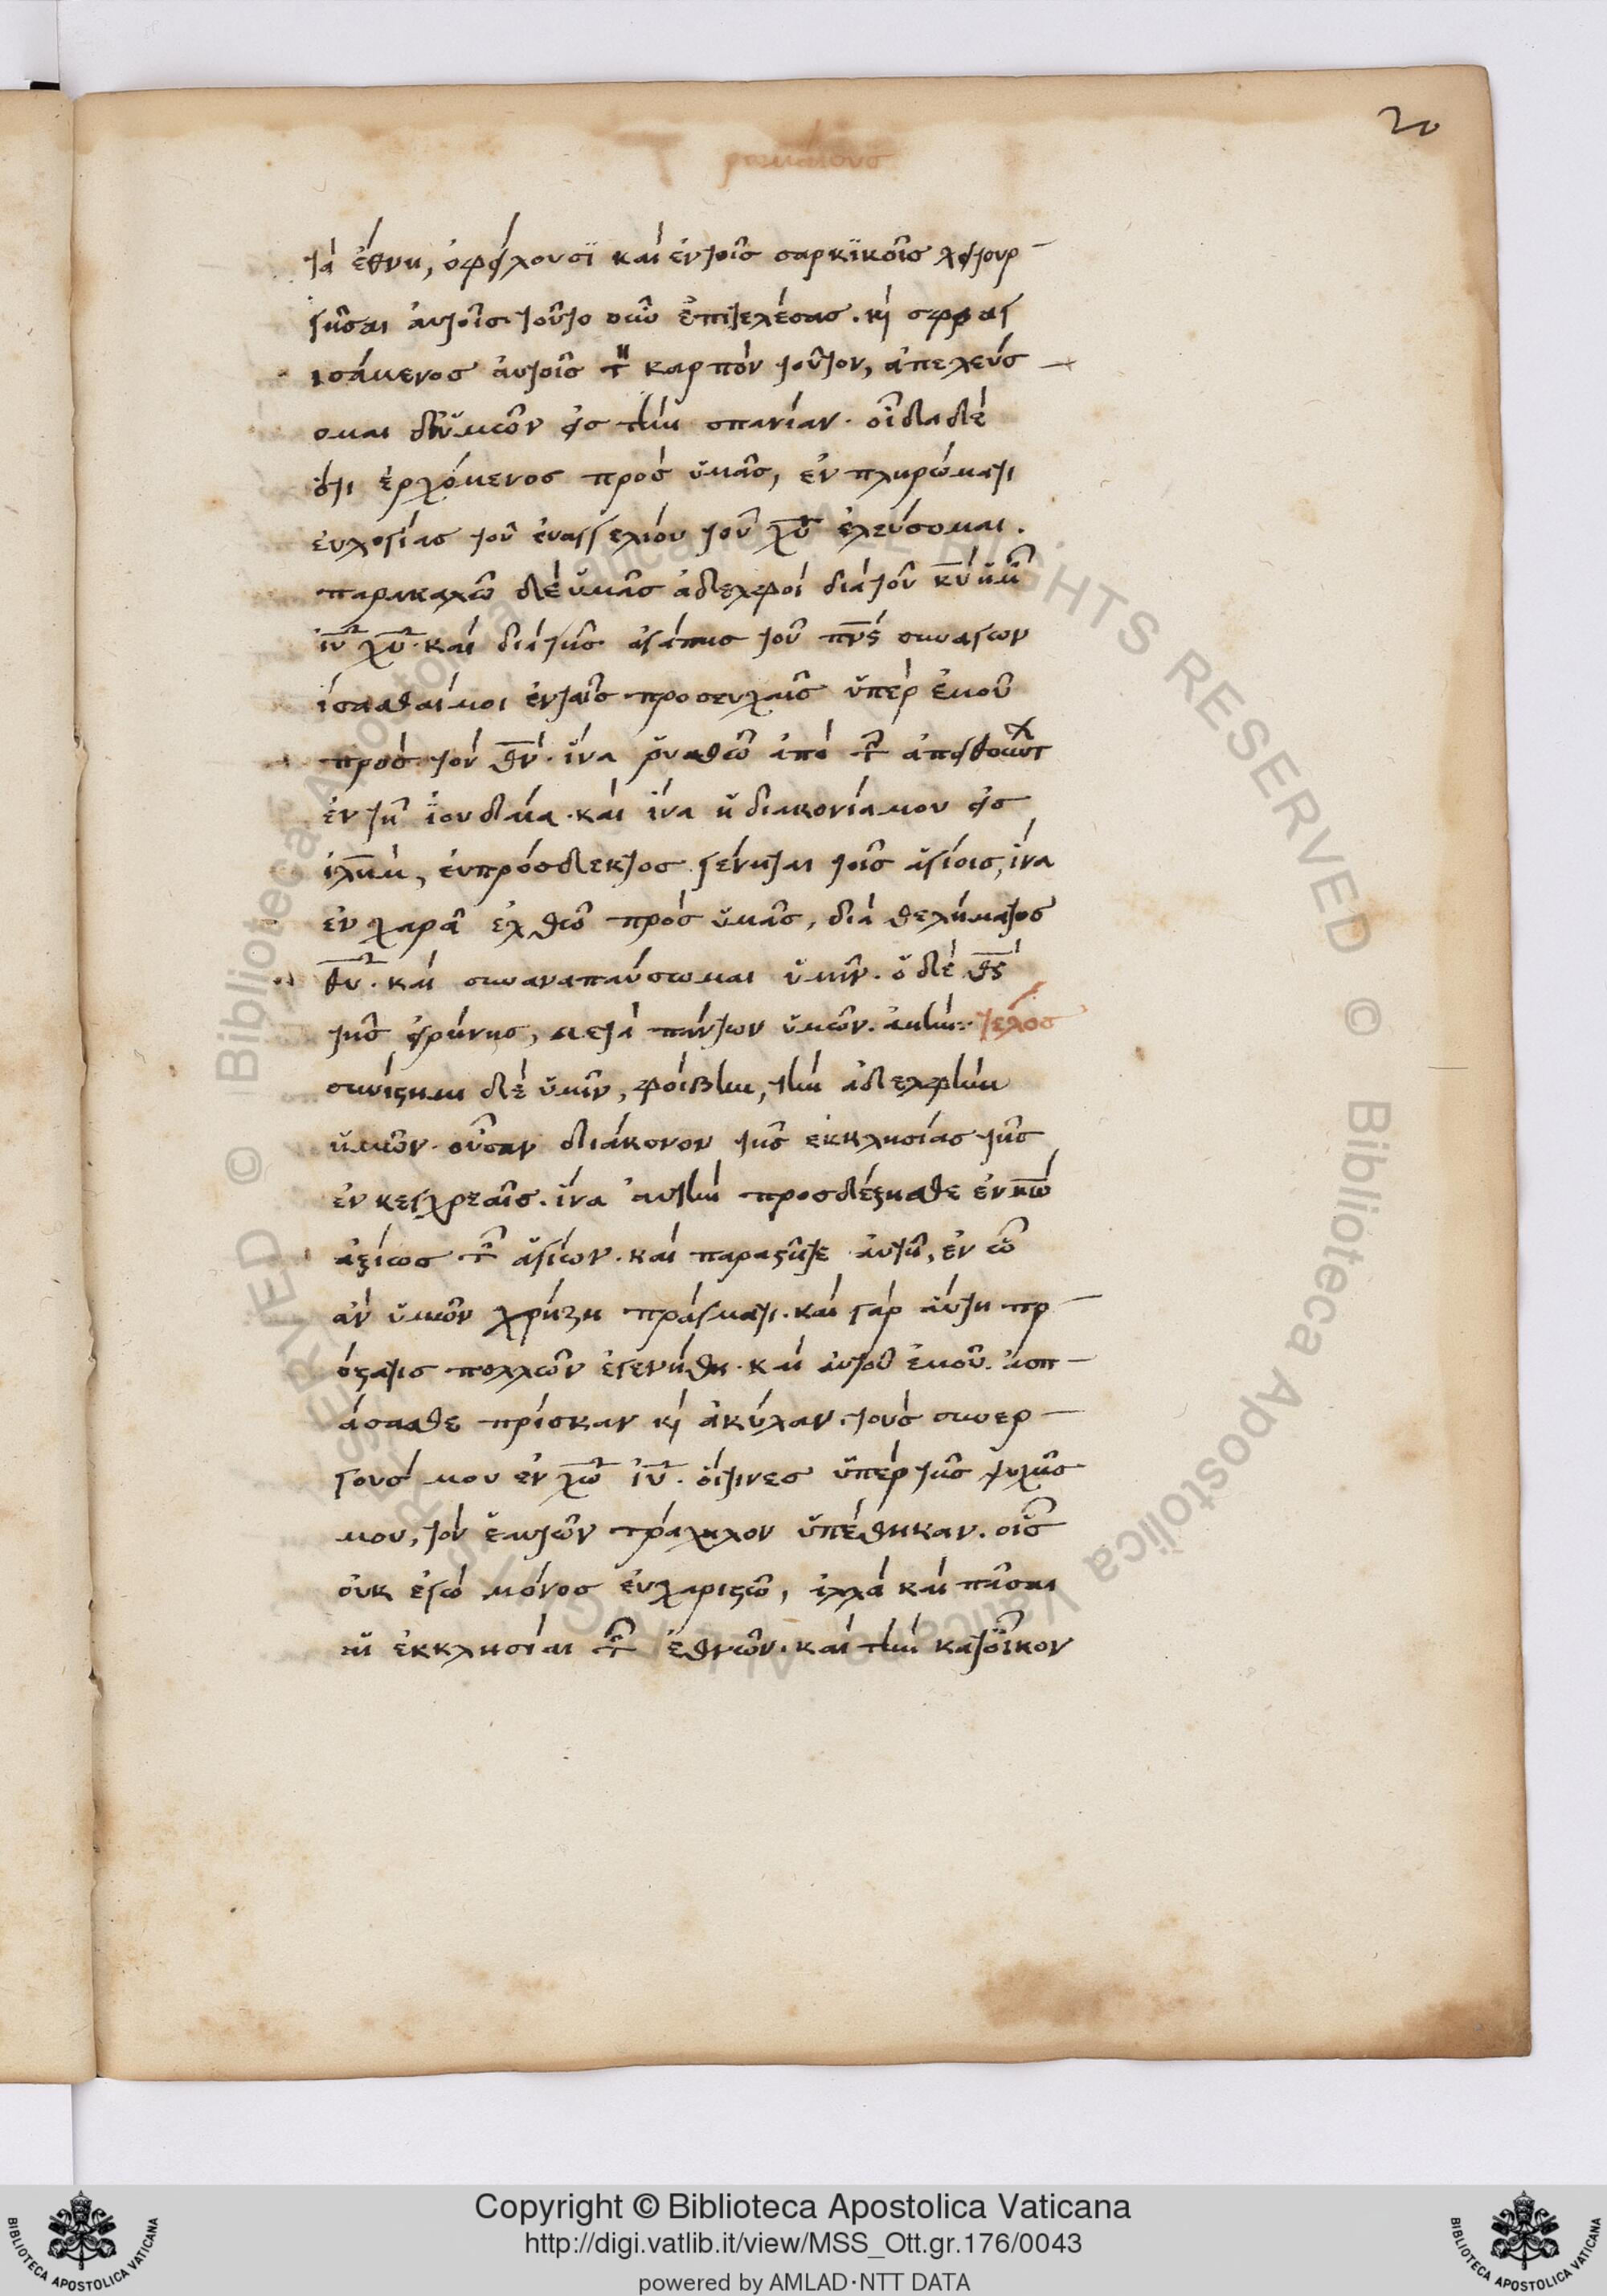 20
ρωμαίουσ
τὰ ἔθνη, ὀφείλουσϊ καὶ ἐν τοῖσ σαρκϊκοῖσ λειτουρ
γῆσαι ἀυτοῖσ· τοῦτο οὖν ἐπιτελέσασ. κὶ σφραγ
ισάμενοσ ἀυτοῖσ τὸν καρπὸν τοῦτον, ἀπελεύσ
ομαι δι' ὑμῶν εἰσ τὴν σπανίαν. οἶδα δὲ
ὅτι ἐρχόμενοσ πρὸσ ὑμᾶσ, ἐν πληρώματι
ἐυλογίασ τοῦ ἐυαγγελίου τοῦ χῦ ἐλεύσομαι.
παρακαλῶ δὲ ὑμᾶσ ἀδελφοὶ διὰ τοῦ κυ ἡμῶν
ιυ χυ. καὶ διὰ τῆσ ἀγάπησ τοῦ πνσ συναγων
ίσασθαί μοι ἐν ταῖσ προσευχαῖσ ὑπὲρ ἐμοῦ
πρὸσ τὸν θν. ἵνα ῥυσθῶ ἀπὸ τῶν ἀπειθούντ
ἐν τῆ ϊουδαία. καὶ ἵνα ἡ διακονία μου εἰσ
ιλημ, ἐυπρόσδεκτοσ γένηται τοῖσ ἁγίοισ, ἵνα
ἐν χαρᾶ ἔλθω πρὸσ ὑμᾶσ, διὰ θελήματοσ
θυ. καὶ συναναπαύσωμαι ὑμῖν. ὁ δὲ θσ
τῆσ εἰρήνησ, μετὰ πάντων ὑμῶν. ἀμήν: τελοσ
συνίστημι δὲ ὑμῖν, φοίβην, τὴν ἀδελφὴν
ὑμῶν. οὖσαν διάκονον τῆσ ἐκκλησίασ τῆσ
ἐν κεγχρεαῖσ. ἵνα ἀυτὴν προσδέξησθε ἐν κω
ἀξίωσ τῶν ἁγίων. καὶ παραστῆτε ἀυτῆ, ἐν ὧ
ἂν ὑμῶν χρήζη πράγματι. καὶ γὰρ ἄυτη πρ
όστατισ πολλῶν ἐγενήθη. καὶ ἀυτοῦ ἐμοῦ. ἀσπ
άσασθε πρίσκαν κὶ ἀκύλαν. τοὺσ συνερ
γούσ μου ἐν χω ιυ. ὅιτινεσ ὑπὲρ τῆσ ψυχῆσ
μου, τὸν ἑαυτῶν τράχηλον ὑπέθηκαν. οἷσ
ὀυκ ἐγὼ μόνοσ ἐυχαριστῶ, ἀλλὰ καὶ πᾶσαι
αἱ ἐκκλησίαι τῶν ἐθνῶν. καὶ τὴν κατ' οἶκον
Copyright © Biblioteca Apostolica Vaticana
http://digi.vatlib.it/view/MSS_Ott.gr.176/0043
powered by AMLAD·NTT DATA